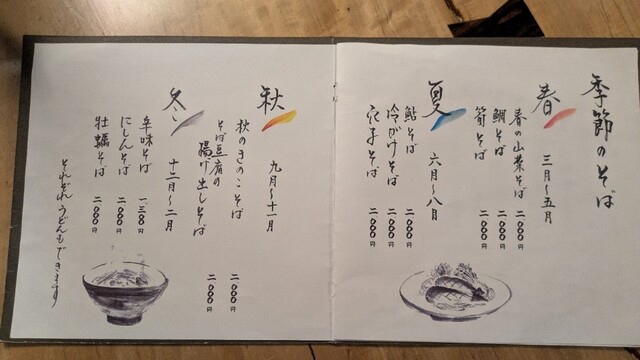 季節のそば
春 三月〜五月
春の山菜そば 二〇〇〇円
鯛そば 二〇〇〇円
筍そば 二〇〇〇円
夏 六月〜八月
鮎そば 二〇〇〇円
冷がけそば 二〇〇〇円
茄子そば 二〇〇〇円
秋 九月〜十一月
秋のきのこそば 二〇〇〇円
そば豆腐の
揚げ出しそば 二〇〇〇円
冬 十二月〜二月
辛味そば 一三〇〇円
にしんそば 二〇〇〇円
牡蠣そば 二〇〇〇円
それぞれうどんもできます